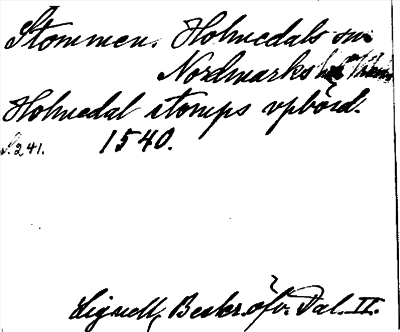 Stommen. Holmedals sn
Nordmarks hd
Holmedal stomps vpbörd.
S. 241. 1540.
Lignell, Beskr. öfv. Dal. II.